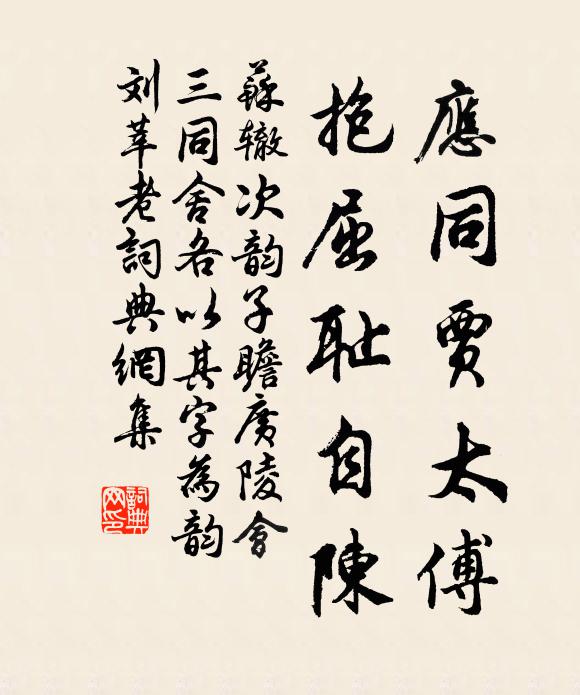 應同賈太傅
抱屈耻自陳
蘇辙次韵子瞻廣陵會
三同舍各以其字為韵
刘莘老詞典網集
詞典
网印